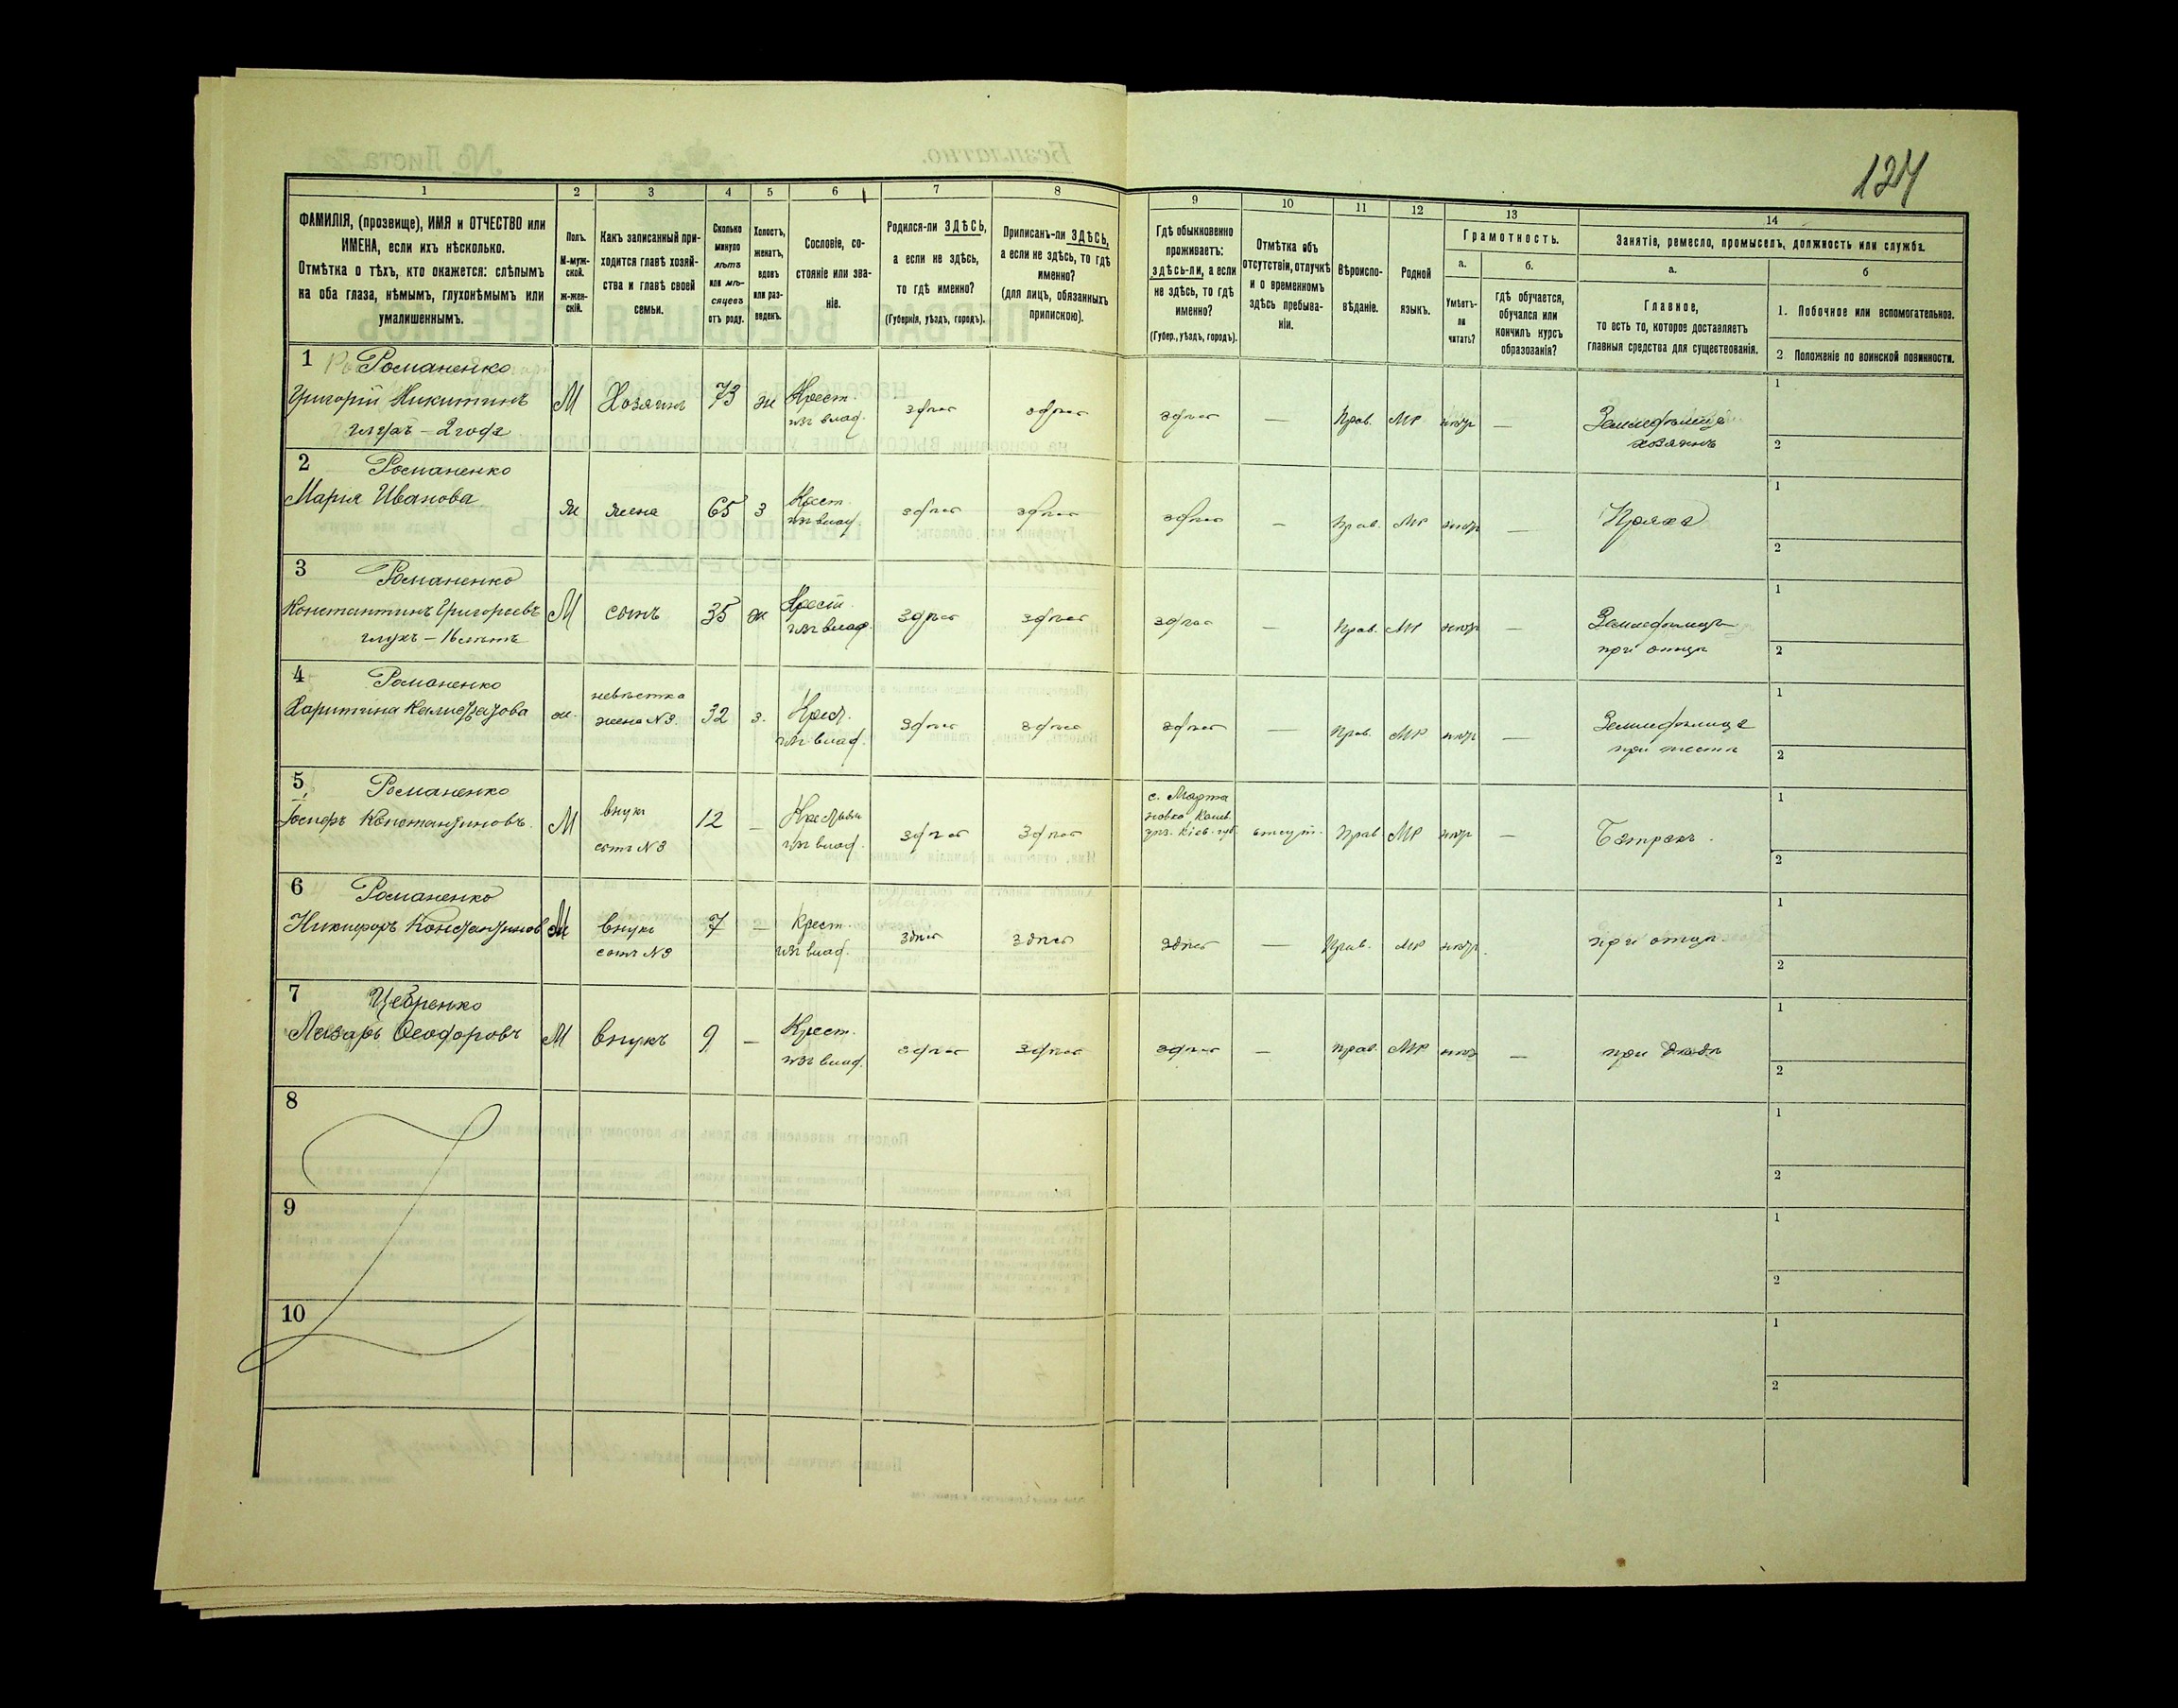 124
1 2 3 4 5 6 7 8 9 10 11 12 13 14
ФАМИЛІЯ, (прозвище), ИМЯ и ОТЧЕСТВО или
ИМЕНА, если ихъ нѣсколько.
Отмѣтка о тѣхъ, кто окажется: слѣпымъ
на оба глаза, нѣмымъ, глухонѣмымъ или
умалишеннымъ.
Полъ.
М-муж-
ской.
ж-жен-
скій.
Какъ записанный при-
ходится главѣ хозяй-
ства и главѣ своей
семьи.
Сколько
минуло
лѣтъ
или мѣ-
сяцевъ
отъ роду.
Холостъ,
женатъ,
вдовъ
или раз-
веденъ.
Сословіе, со-
стояніе или зва-
ніе.
Родился-ли ЗДѢСЬ,
а если не здѣсь,
то гдѣ именно?
(Губернія, уѣздъ, городъ).
Приписанъ-ли ЗДѢСЬ,
а если не здѣсь, то гдѣ
именно?
(для лицъ, обязанныхъ
припискою).
Гдѣ обыкновенно
проживаетъ:
здѣсь-ли, а если
не здѣсь, то гдѣ
именно?
(Губер., уѣздъ, городъ).
Отмѣтка объ
отсутствіи, отлучкѣ
и о временномъ
здѣсь пребыва-
ніи.
Вѣроиспо-
вѣданіе.
Родной
языкъ.
Грамотность.
а.
Умѣетъ-
ли
читать?
б.
гдѣ обучается,
обучался или
кончилъ курсъ
образованія?
Занятіе, ремесло, промыселъ, должность или служба.
а.
Главное,
то есть то, которое доставляетъ
главныя средства для существованія.
б
1. Побочное или вспомогательное.
2 Положеніе по воинской повинности.
1 Романенко
Григорій Никитинъ М Хозяинъ 73 ж Крест. здѣсь здѣсь здѣсь — Прав. МР нѣтъ — Земледѣлецъ 1
глухъ – 2 года из влад. хозяинъ 2
2 Романенко
Марія Иванова ж жена 65 з Крест. здѣсь здѣсь здѣсь — Прав. МР нѣтъ — Пряха 1
из влад. 2
3 Романенко
Константинъ Григорьевъ М сынъ 35 ж Крест. здѣсь здѣсь здѣсь — Прав. МР нѣтъ — Земледѣлецъ 1
глухъ – 16 лѣтъ из влад. при отцѣ 2
4 Романенко невѣстка
Харитина ж. жена №3. 32 з. Крест. здѣсь здѣсь здѣсь — Прав. МР нѣтъ — Земледѣлица 1
из влад. 2
5 Романенко с. Марта
Іосифъ Константиновъ М внукъ 12 — здѣсь здѣсь новка Канев. отсут. Прав МР нѣтъ — Батракъ. 1
сынъ №3 из влад. Кіев. губ. 2
6 Романенко
Никифоръ Константинов М внукъ 7 — Крест. здѣсь здѣсь здѣсь — Прав. МР нѣтъ. при отцѣ 1
сынъ №3 из влад. 2
7 Цебренко
Лазарь Ѳеодоровъ М внукъ 9 — Крест. здѣсь здѣсь здѣсь — Прав. МР нѣтъ — при дядѣ 1
из влад. 2
8 1
2
9 1
2
10 1
2